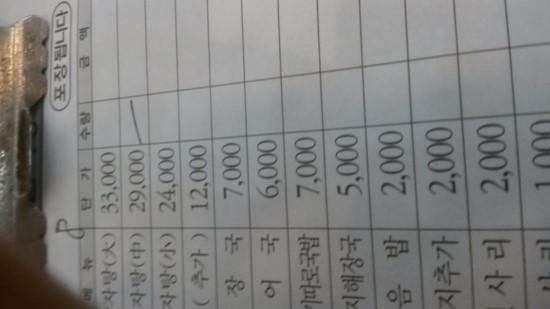 포장됩니다
메뉴 단가 수량 금액
자탕(大) 33,000
자탕(中) 29,000
자탕(小) 24,000
( 추가 ) 12,000
장국 7,000
어국 6,000
따로국밥 7,000
지해장국 5,000
음밥 2,000
지추가 2,000
사리 2,000
사리 1,000